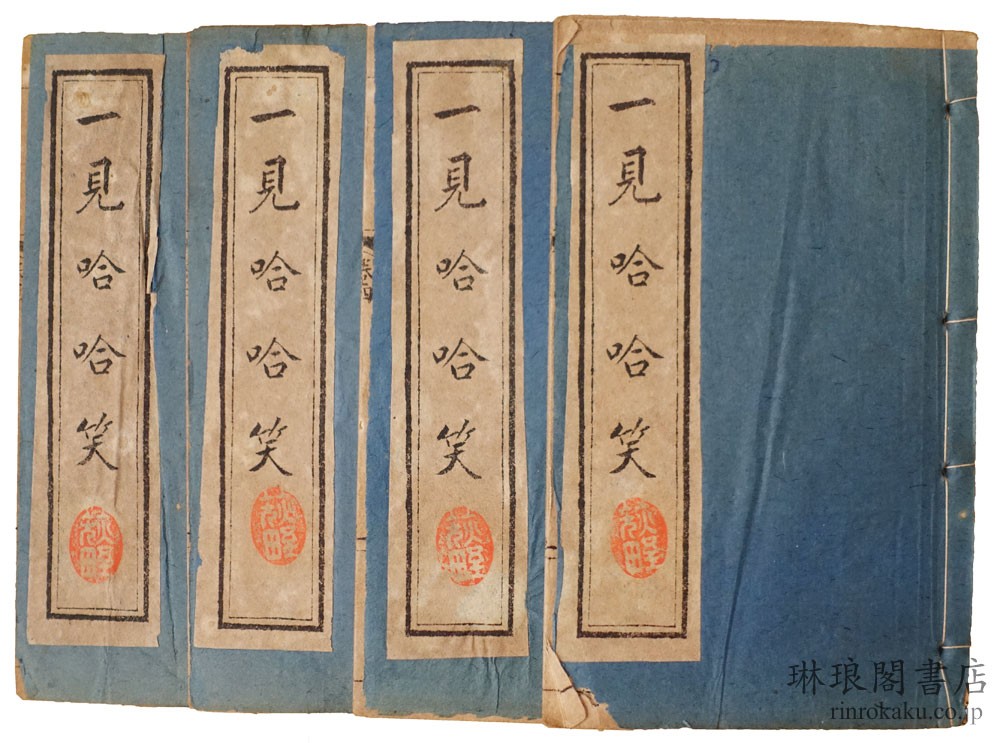 一見哈哈笑
一見哈哈笑
一見哈哈笑
一見哈哈笑
琳琅閣書店
rinrokaku.co.jp